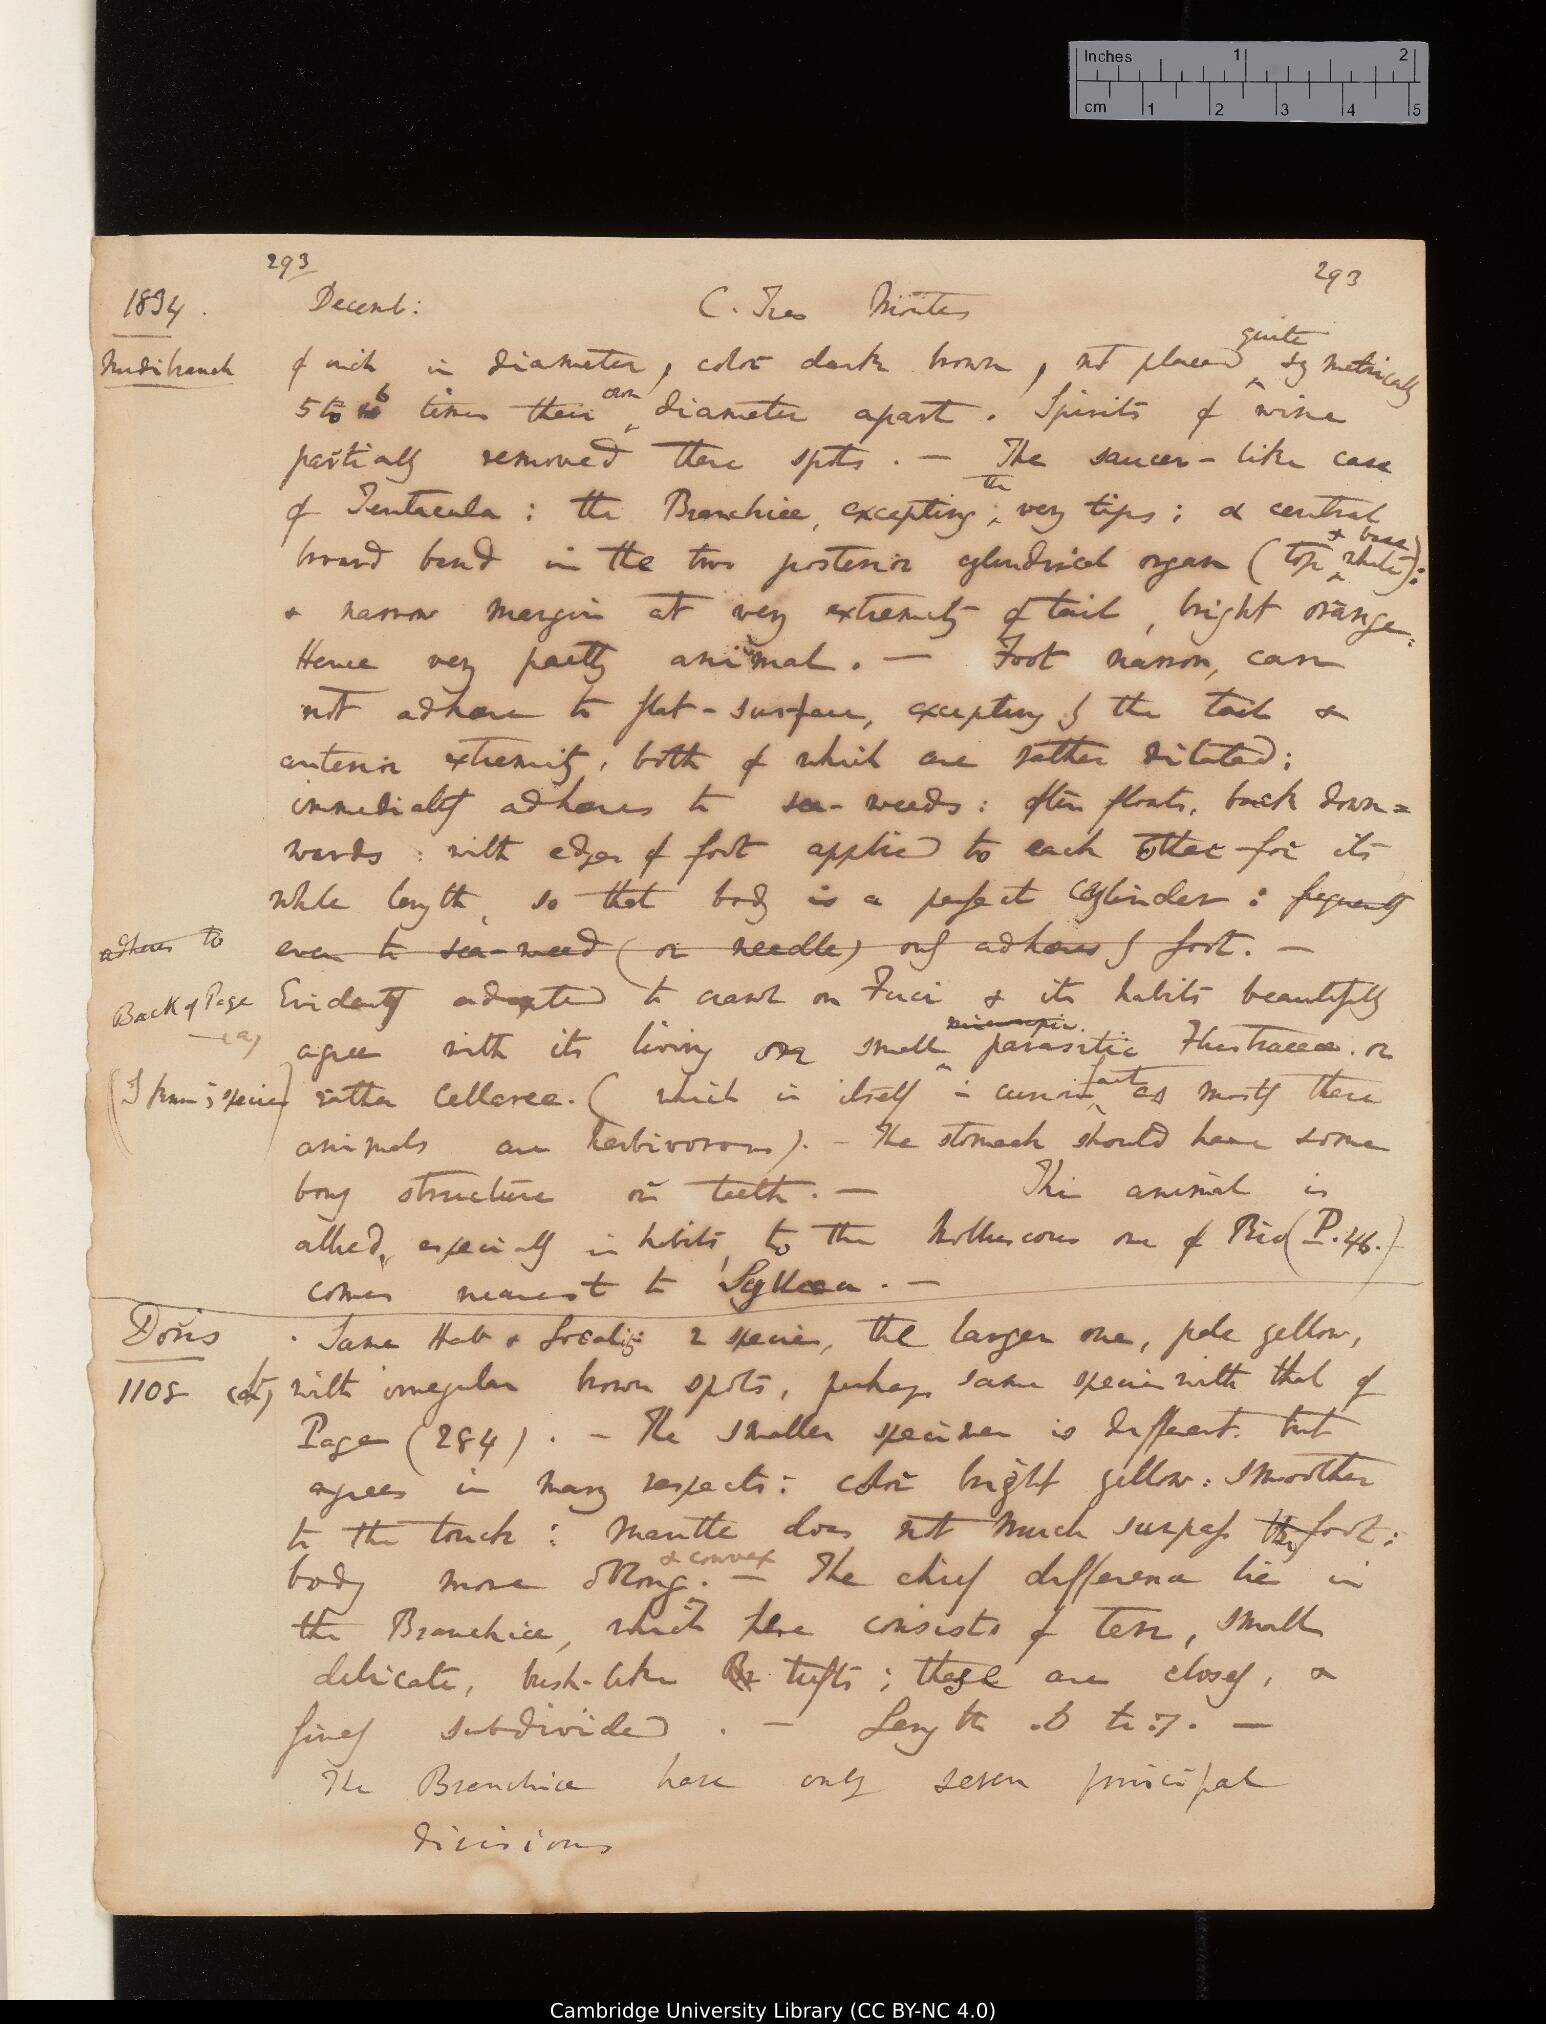 293
293
1834.
Decemb:
C. Tres Montes
Nudibranch
of inch in diameter, color dark brown, not placed quite symetrically
5 to 6 times their own diameter apart. Spirits of wine
partially removed these spots. — The saucer-like case
of Tentacula: the Branchiæ, excepting the very tips; a central
broard band in the two posterior cylindrical organs (top & base white):
& narrow margin at very extremity of tail, bright orange.
Hence very pretty animal. — Foot narrow, can
not adhere to flat-surface, excepting by the tail &
anterior extremity, both of which are rather dilated;
immediately adheres to sea-weeds: often floats, back down=
wards: with edges of foot applied to each other for its
whole length, so that body is a perfect cylinder: frequently
adheres to
even to sea-weed (or needle) only adheres by foot. —
Back of Page
(a)
Evidently adapted to crawl on Fuci & its habits beautifully
agree with its living on small microscopic parasitic Flustraceæ. or
(I know 3 species)
rather Cellereæ. (which in itself is curious fact as mostly these
animals are herbivorous). — The stomach should have some
bony structure or teeth. — This animal is
allied, especially in habits, to the Molluscous one of Rio (P. 46.)
comes nearest to Scyllæa. —
Doris
Same Hab & Locality: 2 species, the larger one, pale yellow,
1108
with irregular brown spots, perhaps same species with that of
Page (284). — The smaller specimen is different. but
agrees in many respects: color bright yellow: smoother
to the touch: Mantle does not much surpass the foot:
body more oblong. & convex — The chief difference lie in
the Branchiæ, which here consists of ten, small
delicate, bush-like Br tufts; these are closely, &
finely subdivided. — Length .6 to .7. —
The Branchiæ have only seven principal
divisions
Inches 1 2
cm 1 2 3 4 5
Cambridge University Library (CC BY-NC 4.0)